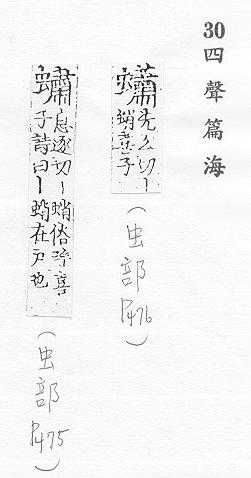 30四聲篇海
蠨先幺切丨
蛸喜子
(虫部
P476)
蟰息逐切丨蛸俗呼喜
子詩曰丨蛸在户也
(虫部
P475)